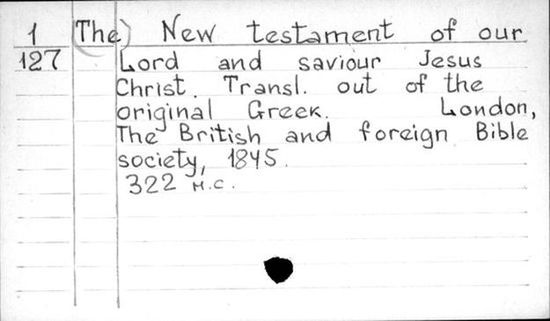 1 (The) New testament of our
127 Lord and saviour Jesus
Christ. Transl. out of the
original Greek. London,
The British and foreign Bible
society, 1845.
322 н.с.